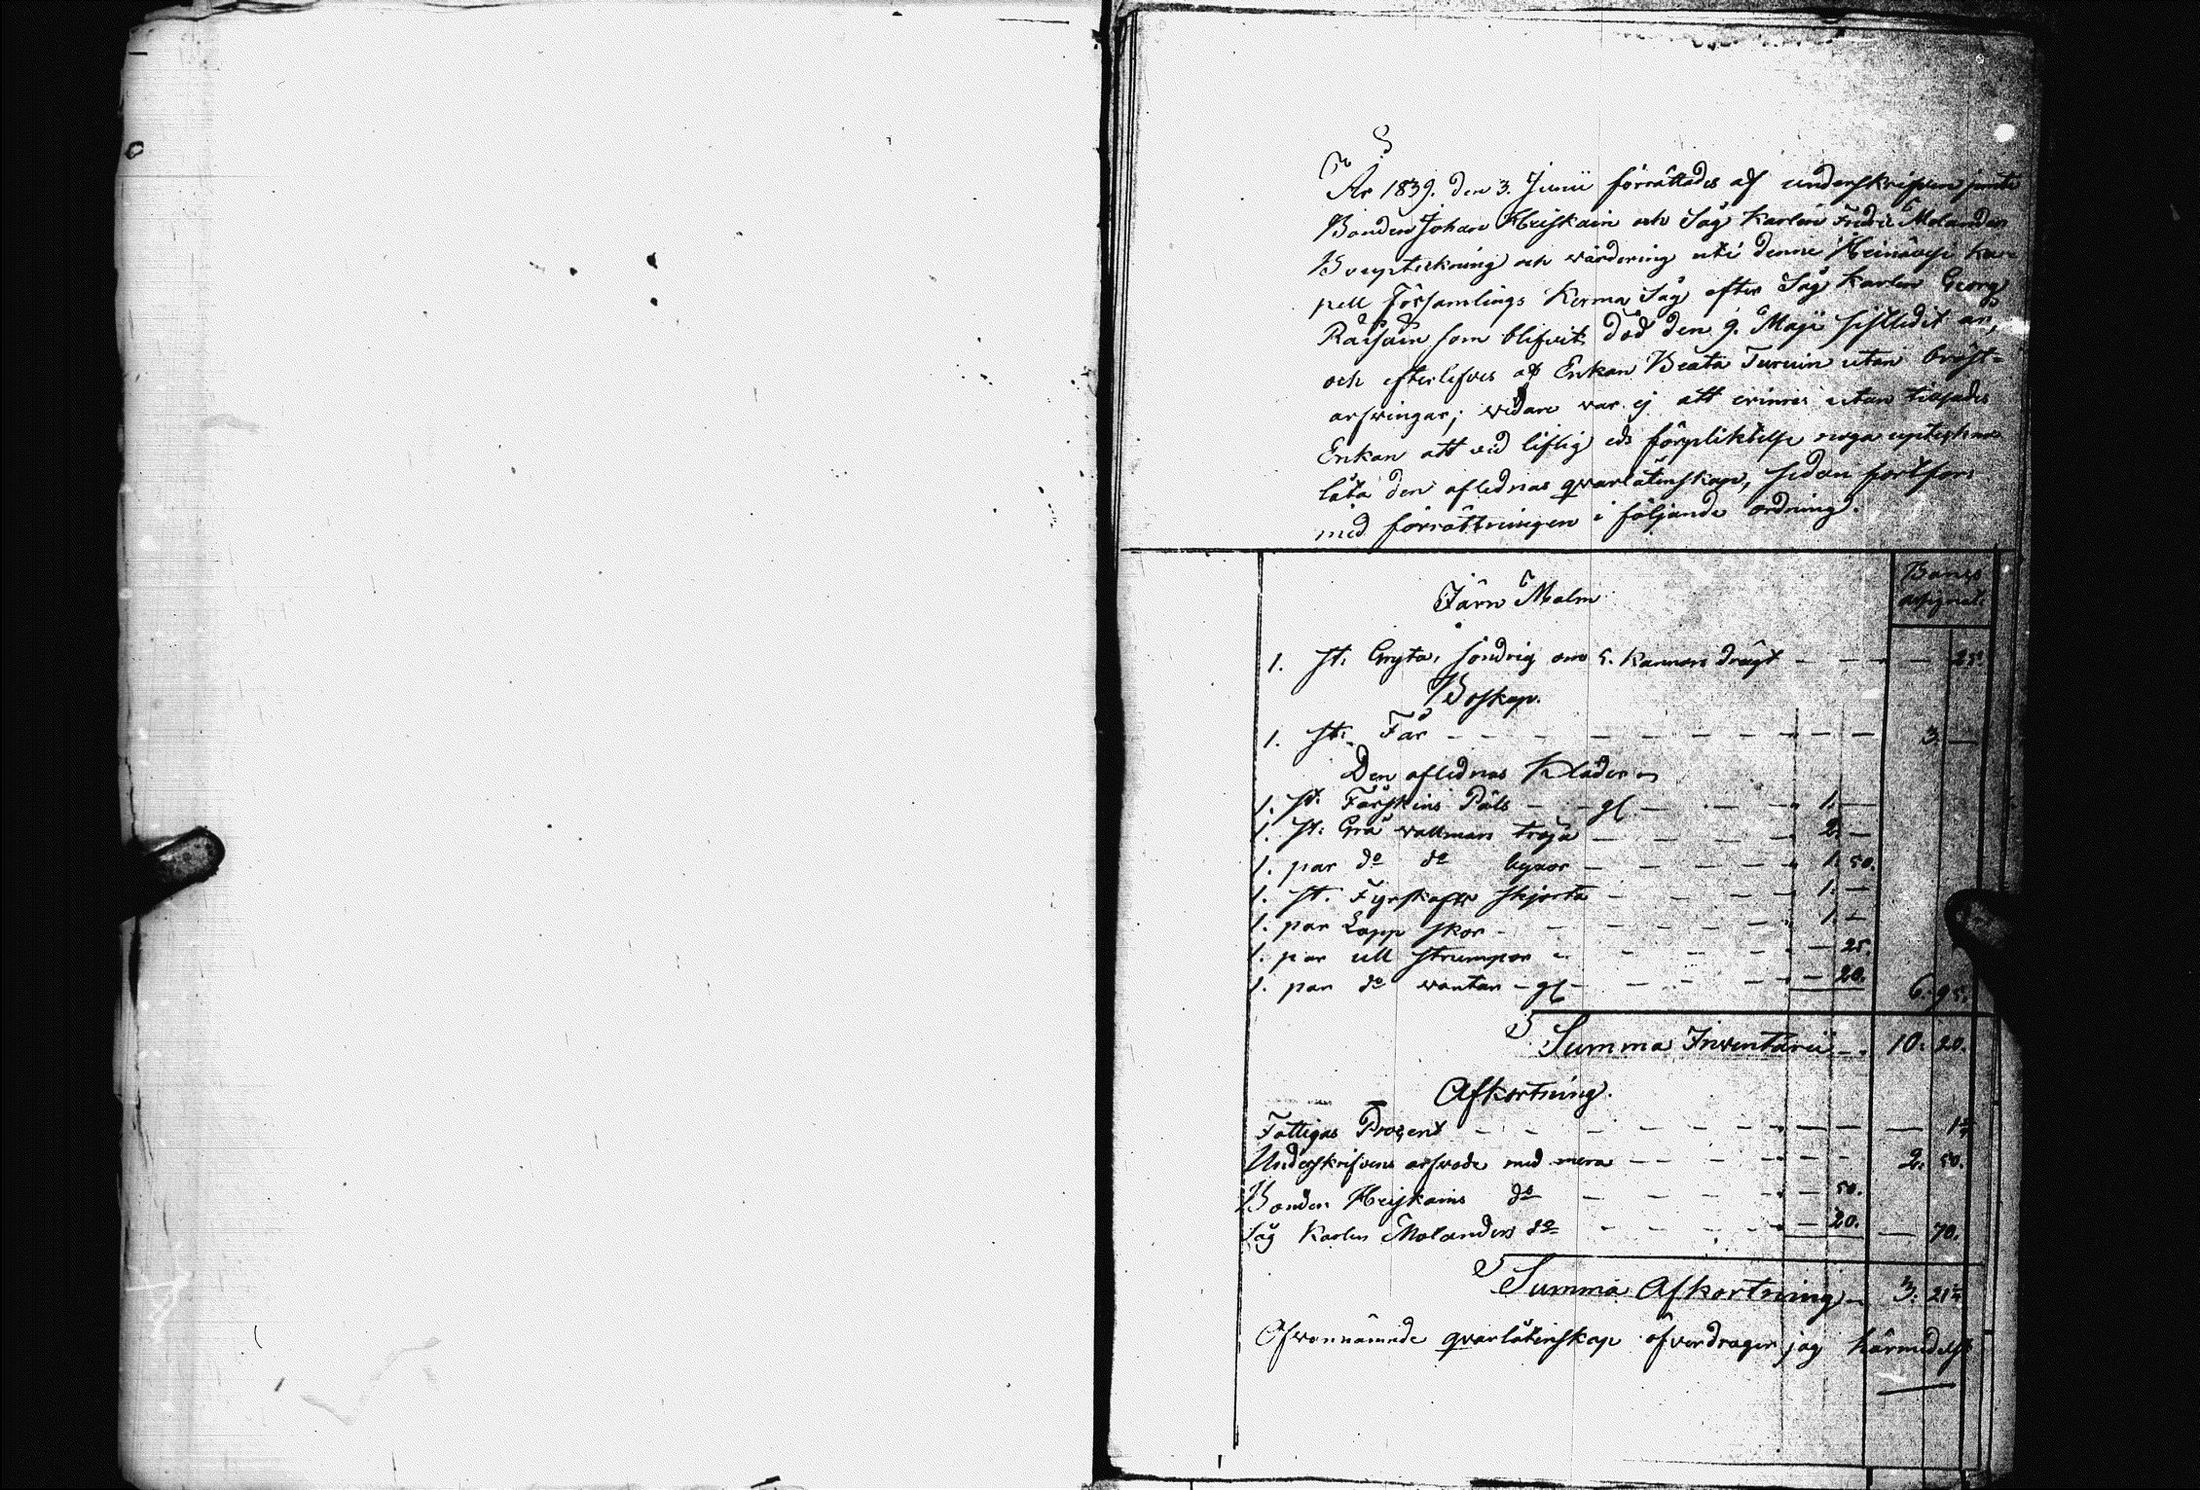 År 1839. den 3. Junii förrättades af underskrifven jemte
Bonden Johan Heiskain och Såg Karlen Fredric Molander
Bouptekning och värdering uti denne Heinävesi ka=
pell Församlings Kerma Såg efter Såg Karlen Georg
Räisäin som blifvit död den 9. Maji sistledit år,
och efterlefves af Enkan Beata Turuin utan bröst=
arfwingar; widare war ej att erinra utan tilsades
Enkan att vid liflig eds förpliktelse noga uptekna
låta den aflednas qvarlåtenskap, sedan fortfors
med förrättningen i följande ordning.
Banco
assignat.
Järn Malm
1. St. Gryta, söndrig om 5. kannors drägt — — — — 25.
Boskap.
1. St. Får — — — — — — — — — 3. —
Den aflednas Kläder
1. St. Fårskins Päls — gl. — — — 1. —
1. St. Grå wallmars tröja — — — — 2. —
1. par do do byxor — — — — 1. 50.
1. St. Fyrskafts skjorta — — — — 1. —
1. par Lapp skor — — — — — 1. —
1. par ull strumpor — — — — — 25.
1. par do wantar — gl — — — — — 20. 6. 95.
Summa Inventarii — 10. 20.
Afkortning.
Fattigas Procent — — — — — — — — 1 1/4
Underskrifvens arfwode med mera — — — — 2. 50.
Bonden Heiskains do — — — — — 50.
Såg Karlen Molanders do — — — — — 20. — 70.
Summa Afkortning — 3. 21 1/4
Ofwannämnde qvarlåtenskap öfverdrager jag härmedelst